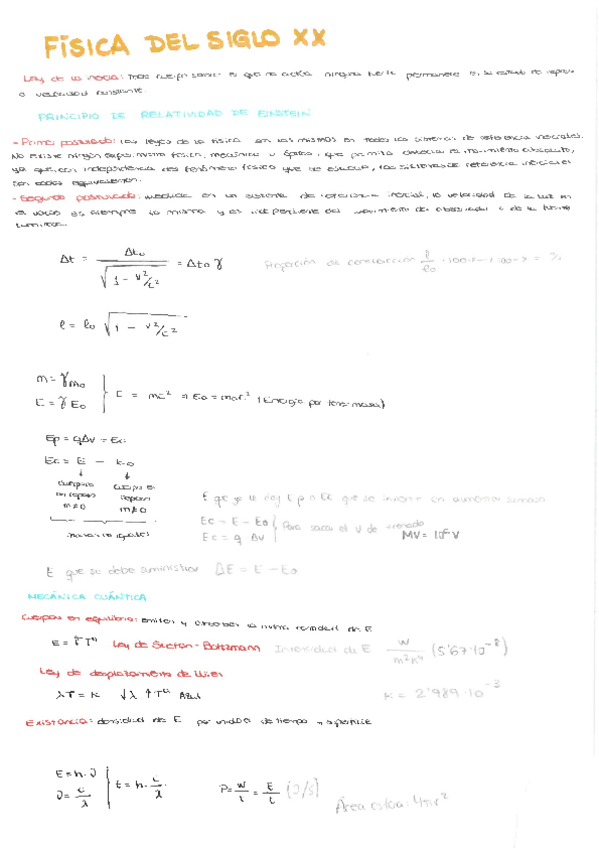 FÍSICA DEL SIGLO XX
Ley de la inercia: Todo cuerpo sobre el que no actúa ninguna fuerza permanece en su estado de reposo
o velocidad constante.
PRINCIPIO DE RELATIVIDAD DE EINSTEIN
- Primer postulado: Las leyes de la física son las mismas en todos los sistemas de referencia inerciales.
No existe ningún experimento físico, mecánico u óptico, que permita detectar el movimiento absoluto,
ya que, con independencia del fenómeno físico que se estudia, los sistemas de referencia inerciales
son todos equivalentes.
- Segundo postulado: medida en un sistema de referencia inercial, la velocidad de la luz en
el vacío es siempre la misma y es independiente del movimiento del observador o de la fuente
luminosa.
Δt = Δto / √(1 - v²/c²) = Δto γ
Proporción de contracción l/lo · 100
l = lo √(1 - v²/c²)
m = γmo
E = γ Eo
E = mc² ⇒ Eo = moc² (Energía por tener masa)
Ep = qΔV = Ec
Ec = E - Eo
↓ ↓
cuerpo en
reposo
m≠0 m≠0
E que ya hay
Ec = E - Eo
Ec = q ΔV
Para sacar el V de frenado
MV = 10⁶ V
E que se debe suministrar ΔE = E - Eo
MECÁNICA CUÁNTICA
Cuerpos en equilibrio: emiten y absorben la misma cantidad de E
E = σT⁴ Ley de Stefan-Boltzmann Intensidad de E W/m²K⁴ (5'67·10⁻⁸)
Ley de desplazamiento de Wien
λT = K ↓λ ↑Tª Azul K = 2'989·10⁻³
Existancia: densidad de E por unidad de tiempo y superficie
E = h·ν
ν = c/λ
E = h· c/λ
P = W/t = E/t (J/s)
Área esfera: 4πr²